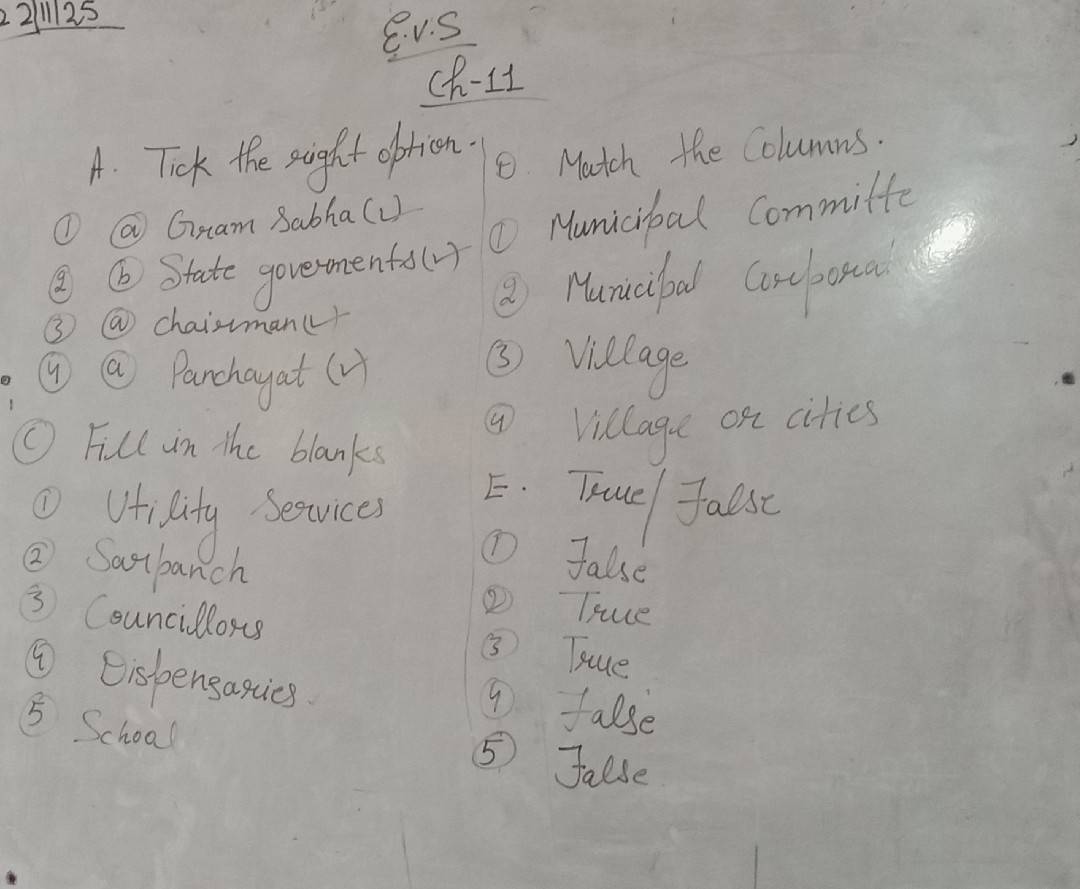 22/11/25
E.V.S
Ch-11
A. Tick the right option.
① ⓐ Gram Sabha (✓)
② ⓑ State goverments (✓)
③ ⓐ chairman (✓)
④ ⓐ Panchayat (✓)
Ⓒ Fill in the blanks
① Utility Services
② Sarpanch
③ Councillors
④ Dispensaries.
⑤ School
D. Match the Columns.
① Municipal Committe
② Municipal
③ Village
④ Village or cities
E. True/False
① False
② True
③ True
④ False
⑤ False